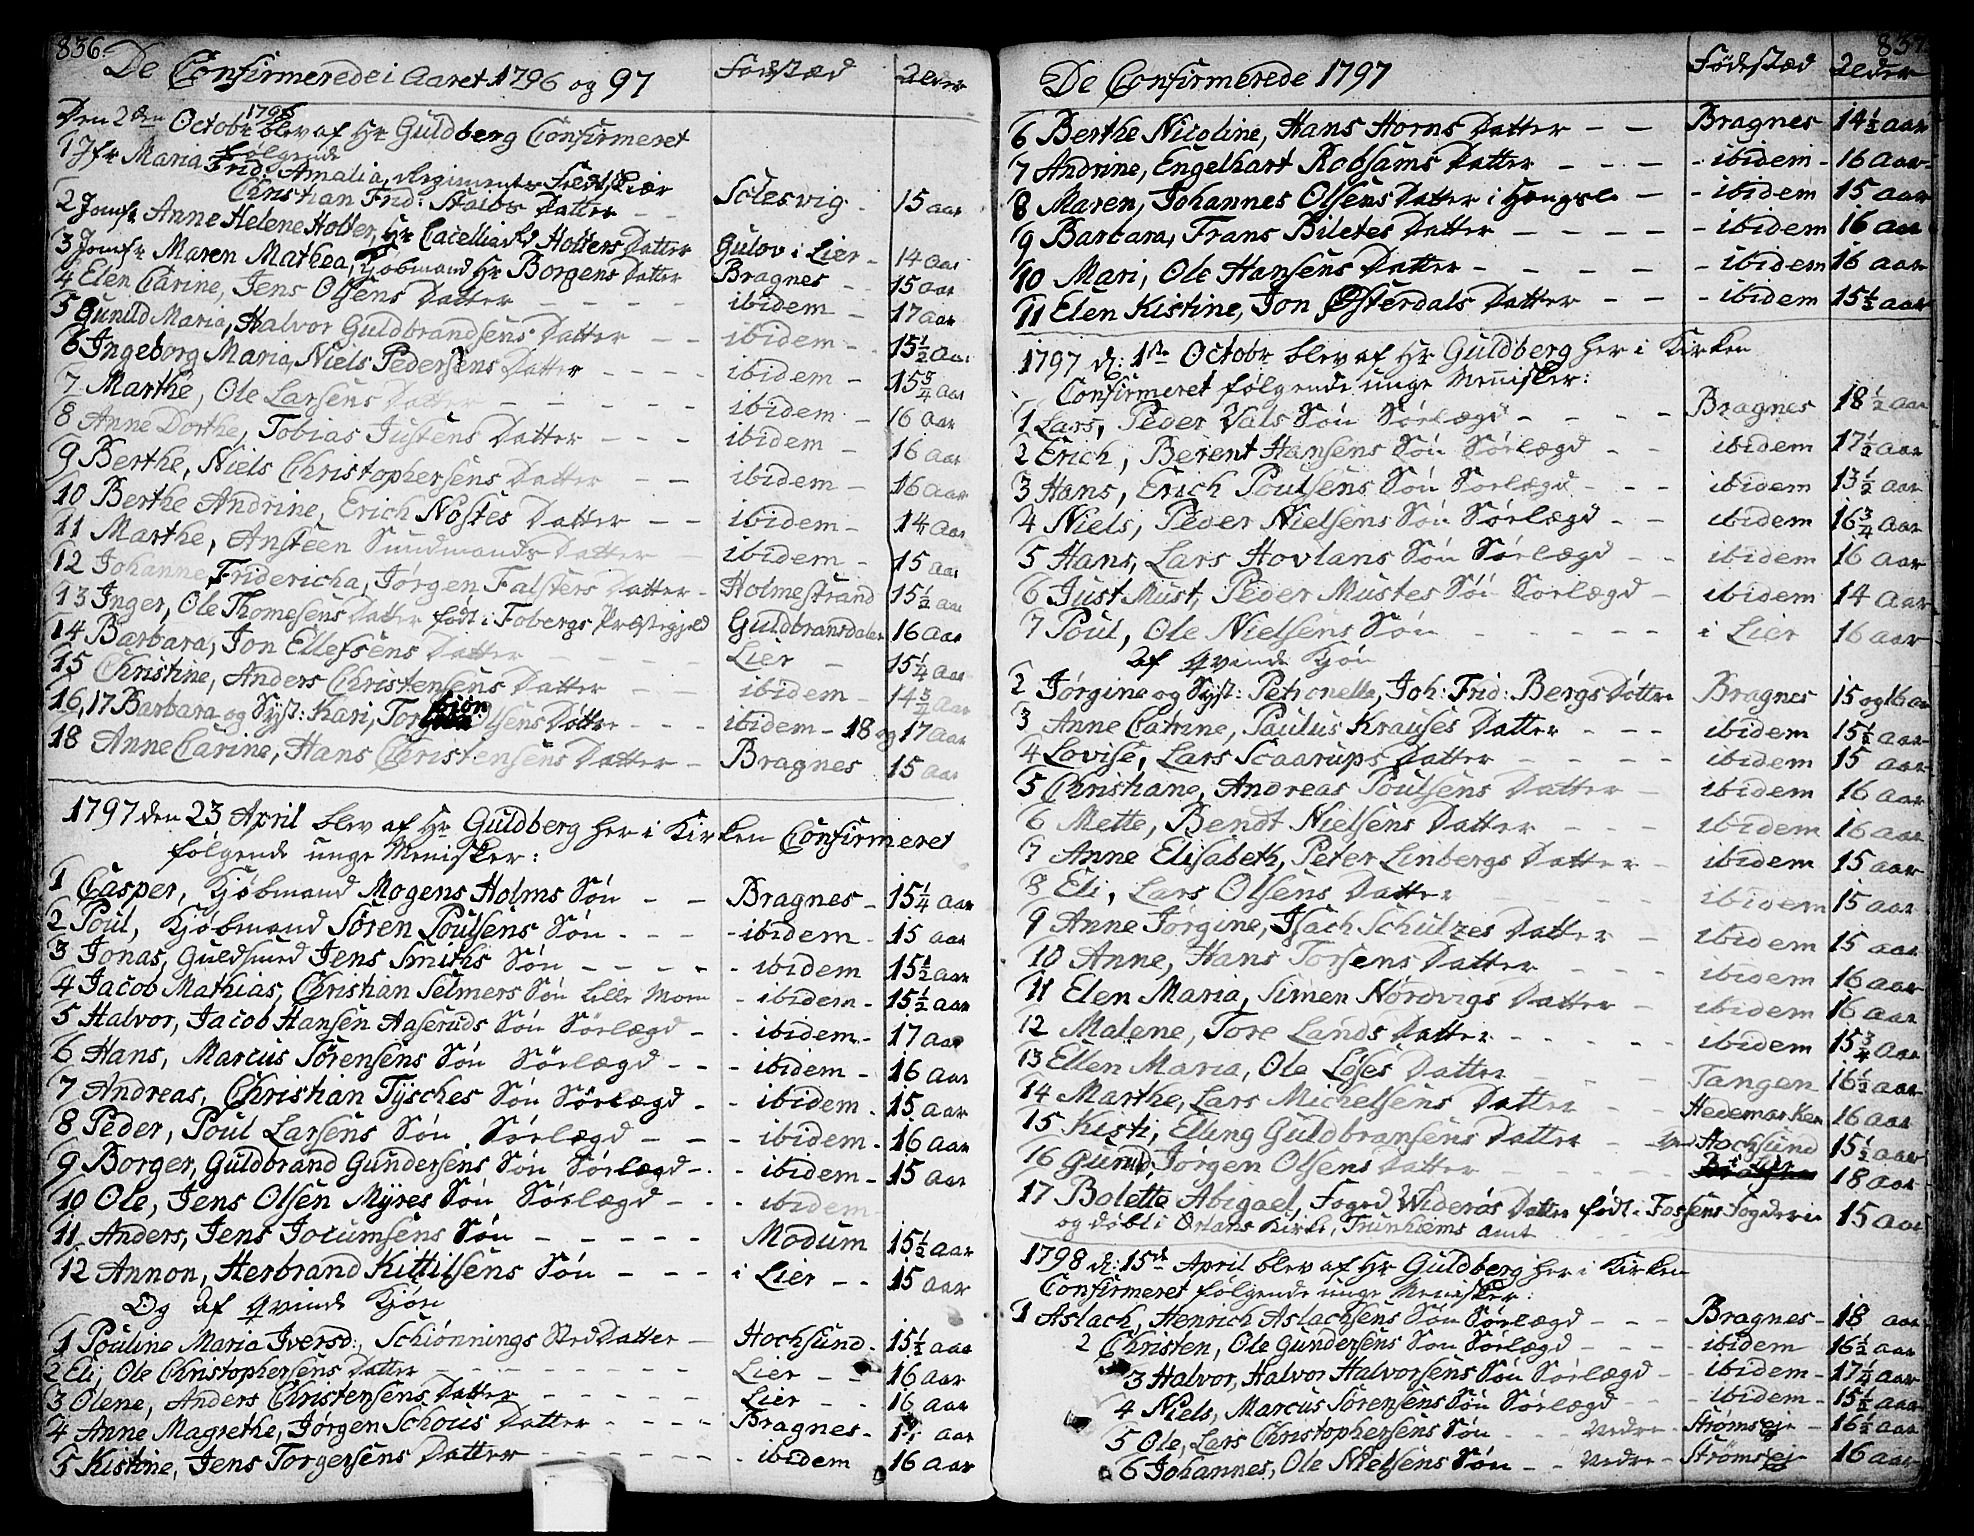 836.
De Confirmerede i Aaret 1796 og 97 Fødstæd Alder
Den 2den Octobr 1796 blev af Hr Guldberg Confirmeret
følgende
1 Jfr Maria Frid: Amalia, Regiments Feldtskiær
Christian Frid: Stalbs Datter - - Solesvig - 15 aar
2 Jomfr Anne Helene Holter, Hr Holters Datter Gulov i Lier - 14 aar
3 Jomfr Maren Mathea, Kjøbmand Hr Borgens Datter Bragnes - - 15 aar
4 Elen Carine, Jens Olsens Datter - - - - ibidem - 17 aar
5 Gunild Maria, Halvor Guldbrandsens Datter - - ibidem - - 15 1/2 aar
6 Ingeborg Maria, Niels Pedersens Datter - - - - ibidem - 15 3/4 aar
7 Marthe, Ole Larsens Datter - - - - - ibidem - 16 aar
8 Anne Dorthe, Tobias Justens Datter - - - ibidem - 16 aar
9 Berthe, Niels Christophersens Datter - - ibidem - 16 aar
10 Berthe Andrine, Erich Nøstes Datter - - ibidem - 14 aar
11 Marthe, Ansteen Sundmands Datter - ibidem - 15 aar
12 Johanne Fridericha, Jørgen Falsters Datter - Holmestrand 15 1/2 aar
13 Inger, Ole Thomesens Datter født i Fobergs Præstegjeld Guldbransdalen 16 aar
14 Barbara, Jon Ellefsens Datter - - - - Lier - 15 1/4 aar
15 Christine, Anders Christensens Datter - - ibidem - 14 3/4 aar
16, 17 Barbara og Syst: Kari, Torbiøn Olsens Døtre - - - ibidem - 18 og 17 aar
18 Anne Carine, Hans Christensens Datter - Bragnes 15 aar
1797 den 23 April blev af Hr Guldberg her i Kirken Confirmeret
følgende unge Menisker:
1 Casper, Kjøbmand Mogens Holms Søn - - Bragnes - 15 1/4 aar
2 Poul, Kjøbmand Søren Poulsens Søn - - - - ibidem - 15 aar
3 Jonas, Guldsmed Jens Smiths Søn - - - - - ibidem 15 1/2 aar
4 Jacob Mathias, Christian Selmers Søn lille Moen - ibidem - 15 1/2 aar
5 Halvor, Jacob Hansen Aaseruds Søn Sørlægd - - ibidem - 17 aar
6 Hans, Marcus Sørensens Søn Sørlægd - - - ibidem - 16 aar
7 Andreas, Christian Tysches Søn Sørlægd - - ibidem - 15 aar
8 Peder, Poul Larsens Søn Sørlægd - - - ibidem - 16 aar
9 Borger, Guldbrand Gundersens Søn Sørlægd - - ibidem - 15 aar
10 Ole, Jens Olsen Myres Søn Sørlægd - - ibidem
11 Anders, Jens Jocumsens Søn - - - - - Modum 15 1/2 aar
12 Annon, Herbrand Kittilsens Søn - - - i Lier - - 15 aar
Og af Qvinde Kjøn
1 Pouline Maria Iversd:, Schiønnings Sted Datter - Hochsund - 15 1/2 aar
2 Eli, Ole Christophersens Datter - - - - - - Lier - - 16 aar
3 Olene, Anders Christensens Datter - - - - - Lier - - 16 aar
4 Anne Magrethe, Jørgen Schous Datter - - - - Bragnes - aar
5 Kistine, Jens Torgersens Datter - - - - - - ibidem 16 aar
837
De Confirmerede 1797 Fødestæd Alder
6 Berthe Nicoline, Hans Horns Datter - - Bragnes 14 1/2 aar
7 Andrine, Engelhart Robsams Datter - - - - ibidem - 16 aar
8 Maren, Johannes Olsens Datter i - - ibidem 15 aar
9 Barbara, Frans Biletes Datter - - - - - ibidem 16 aar
10 Mari, Ole Hansens Datter - - - - - ibidem 16 aar
11 Elen Kistine, Jon Østerdals Datter - - - ibidem 15 1/2 aar
1797 d: 1ste Octobr blev af Hr Guldberg her i Kirken
Confirmeret følgende unge Menisker:
1 Lars, Peder Vals Søn Sørlægd - - - - Bragnes 18 1/2 aar
2 Erich, Berent Hansens Søn Sørlægd - - ibidem 17 1/2 aar
3 Hans, Erich Poulsens Søn Sørlægd - - - ibidem 13 1/2 aar
4 Niels, Peder Nielsens Søn Sørlægd - - ibidem 16 3/4 aar
5 Hans, Lars Hovlans Søn Sørlægd - - ibidem 16 aar
6 Just Must, Peder Mustes Søn Sørlægd - ibidem 14 aar
7 Poul, Ole Nielsens Søn - - - - - i Lier 16 aar
af Qvinde Kjøn
2 Jørgine og Syst: Petronelle, Joh: Frid: Bergs Døttre Bragnes 15 og 16 aar
3 Anne Catrine, Paulus Krauses Datter - - - ibidem 15 1/2 aar
4 Lovise, Lars Scaarups Datter - - - - ibidem 15 aar
5 Christiane, Andreas Poulsens Datter - ibidem 16 aar
6 Mette, Bendt Nielsens Datter - - - ibidem 16 aar
7 Anne Elisabeth, Peter Linbergs Datter - ibidem 15 aar
8 Eli, Lars Olsens Datter - - - - ibidem 15 aar
9 Anne Jørgine, Isach Schulzes Datter - ibidem 15 aar
10 Anne, Hans Torsens Datter - - - ibidem 16 aar
11 Elen Maria, Simen Nordvigs Datter - ibidem 16 aar
12 Malene, Tore Lands Datter - - - - - ibidem 15 3/4 aar
13 Ellen Maria, Ole Løses Datter - - - Tangen 16 1/2 aar
14 Marthe, Lars Michelsens Datter - - Hedemarken 16 aar
15 Kisti, Elling Guldbransens Datter - ved Hochsund 15 1/2 aar
16 Gunild, Jørgen Olsens Datter - - 18 aar
17 Bolette Abigael, Foged Widerøs Datter født i Fossens Fogderie 15 aar
og døbt i Ørlans Kirke, Trunhiems Amt
1798 d: 15de April blev af Hr Guldberg her i Kirken
Confirmeret følgende unge Menisker:
1 Aslach, Henrich Aslachsens Søn Sørlægd - - - Bragnes - 18 aar
2 Christen, Ole Gundersens Søn Sørlægd - - - - ibidem 16 1/2 aar
3 Halvor, Halvor Halvorsens Søn Sørlægd - - ibidem - 17 1/4 aar
4 Niels, Marcus Sørensens Søn Sørlægd - - - ibidem - 15 1/2 aar
5 Ole, Lars Christophersens Søn - - - Nedre - Strømsøe - 16 1/2 aar
6 Johannes, Ole Nielsens Søn - - Nedre - Strømsøe 16 aar